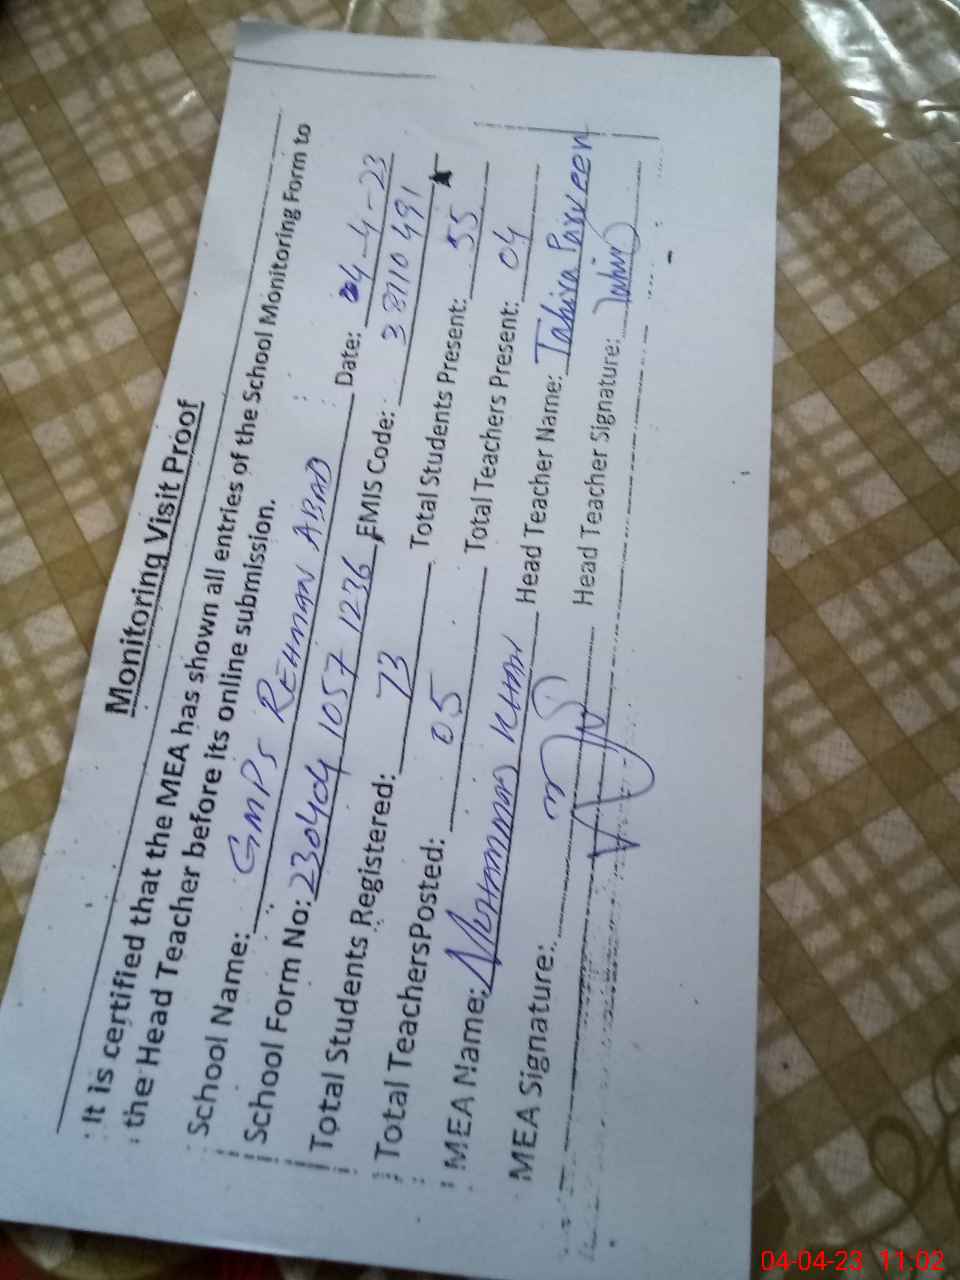 Monitoring Visit Proof
It is certified that the MEA has shown all entries of the School Monitoring Form to
the Head Teacher before its online submission.
School Name: GMPS REHMAN ABAD Date: 04-4-23
School Form No: 230404 1057 1236 EMIS Code: 38110491
Total Students Registered: 73 Total Students Present: 55
Total TeachersPosted: 05 Total Teachers Present: 04
MEA Name: MUHAMMAD KHAN Head Teacher Name: Tahira Parveen
MEA Signature: Head Teacher Signature: Tahir
04-04-23 11:02